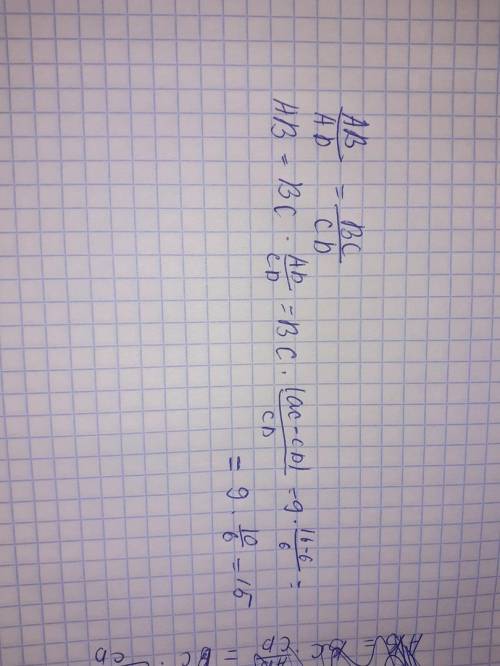 AB/AD = BC/CD
AB = BC · AD/CD = BC · (ac-cD)/CD = 9 · 16-6/6 =
= 9 · 10/6 = 15